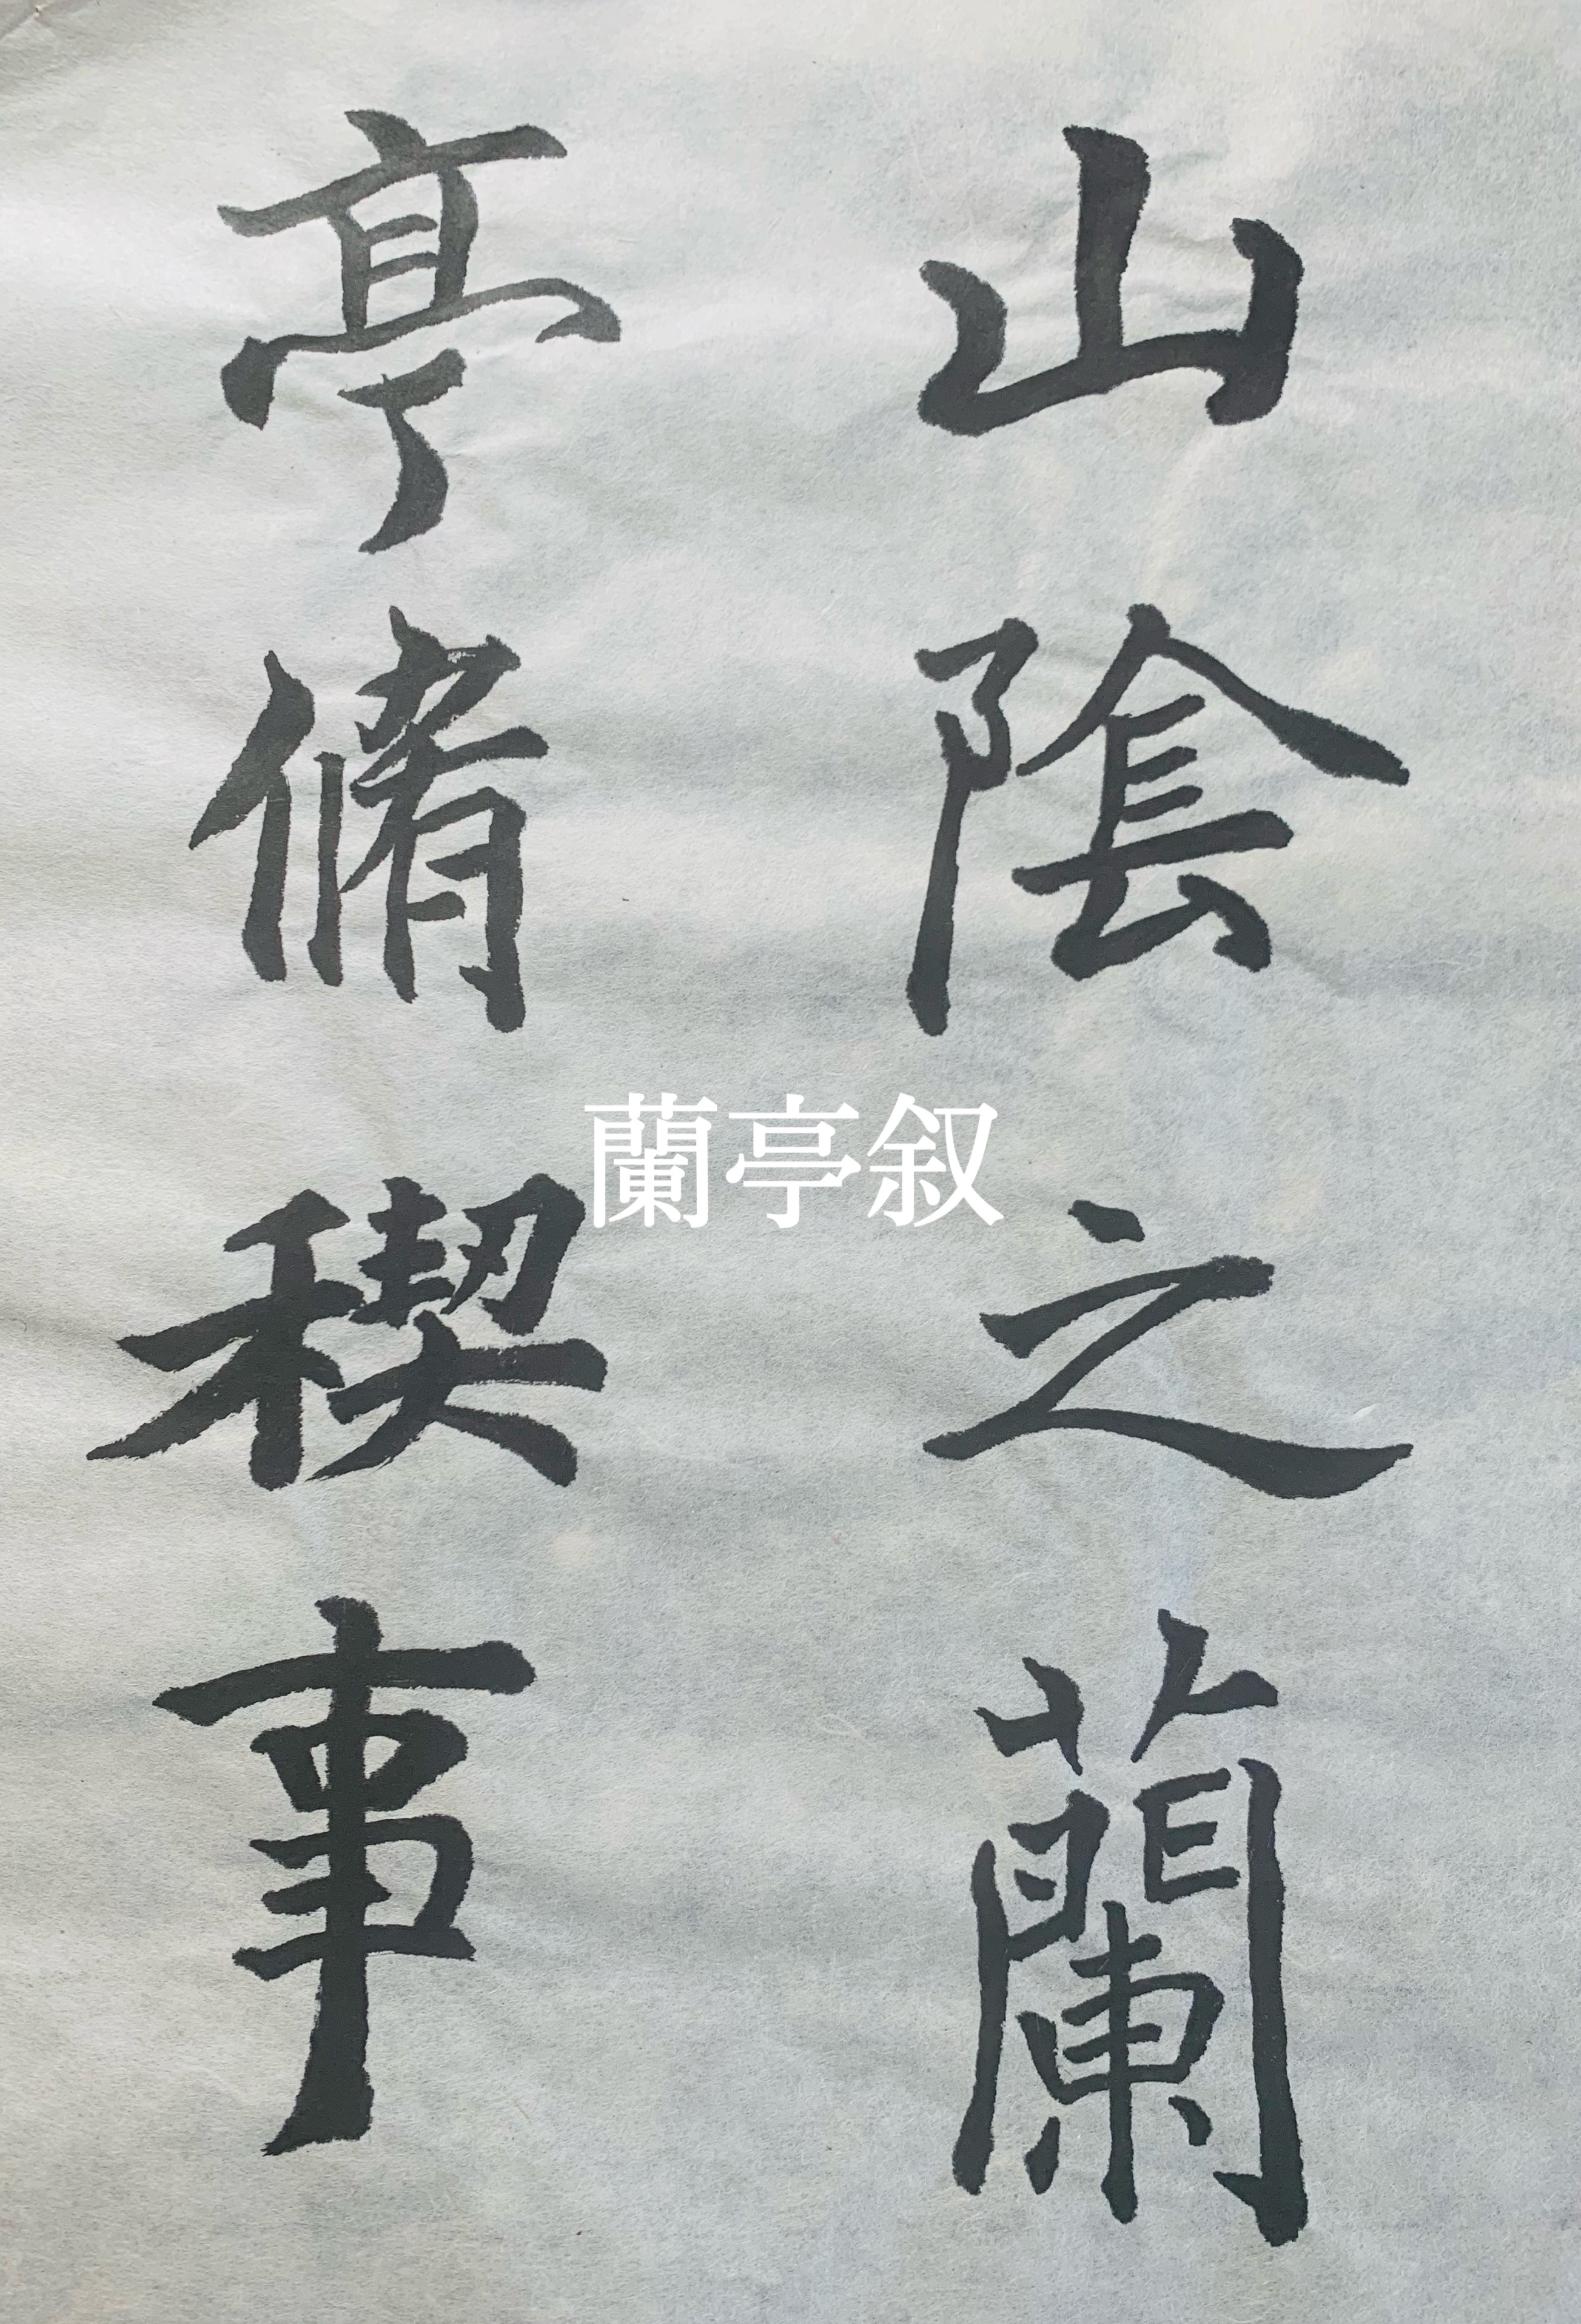 山陰之蘭
亭脩稧事
蘭亭叙